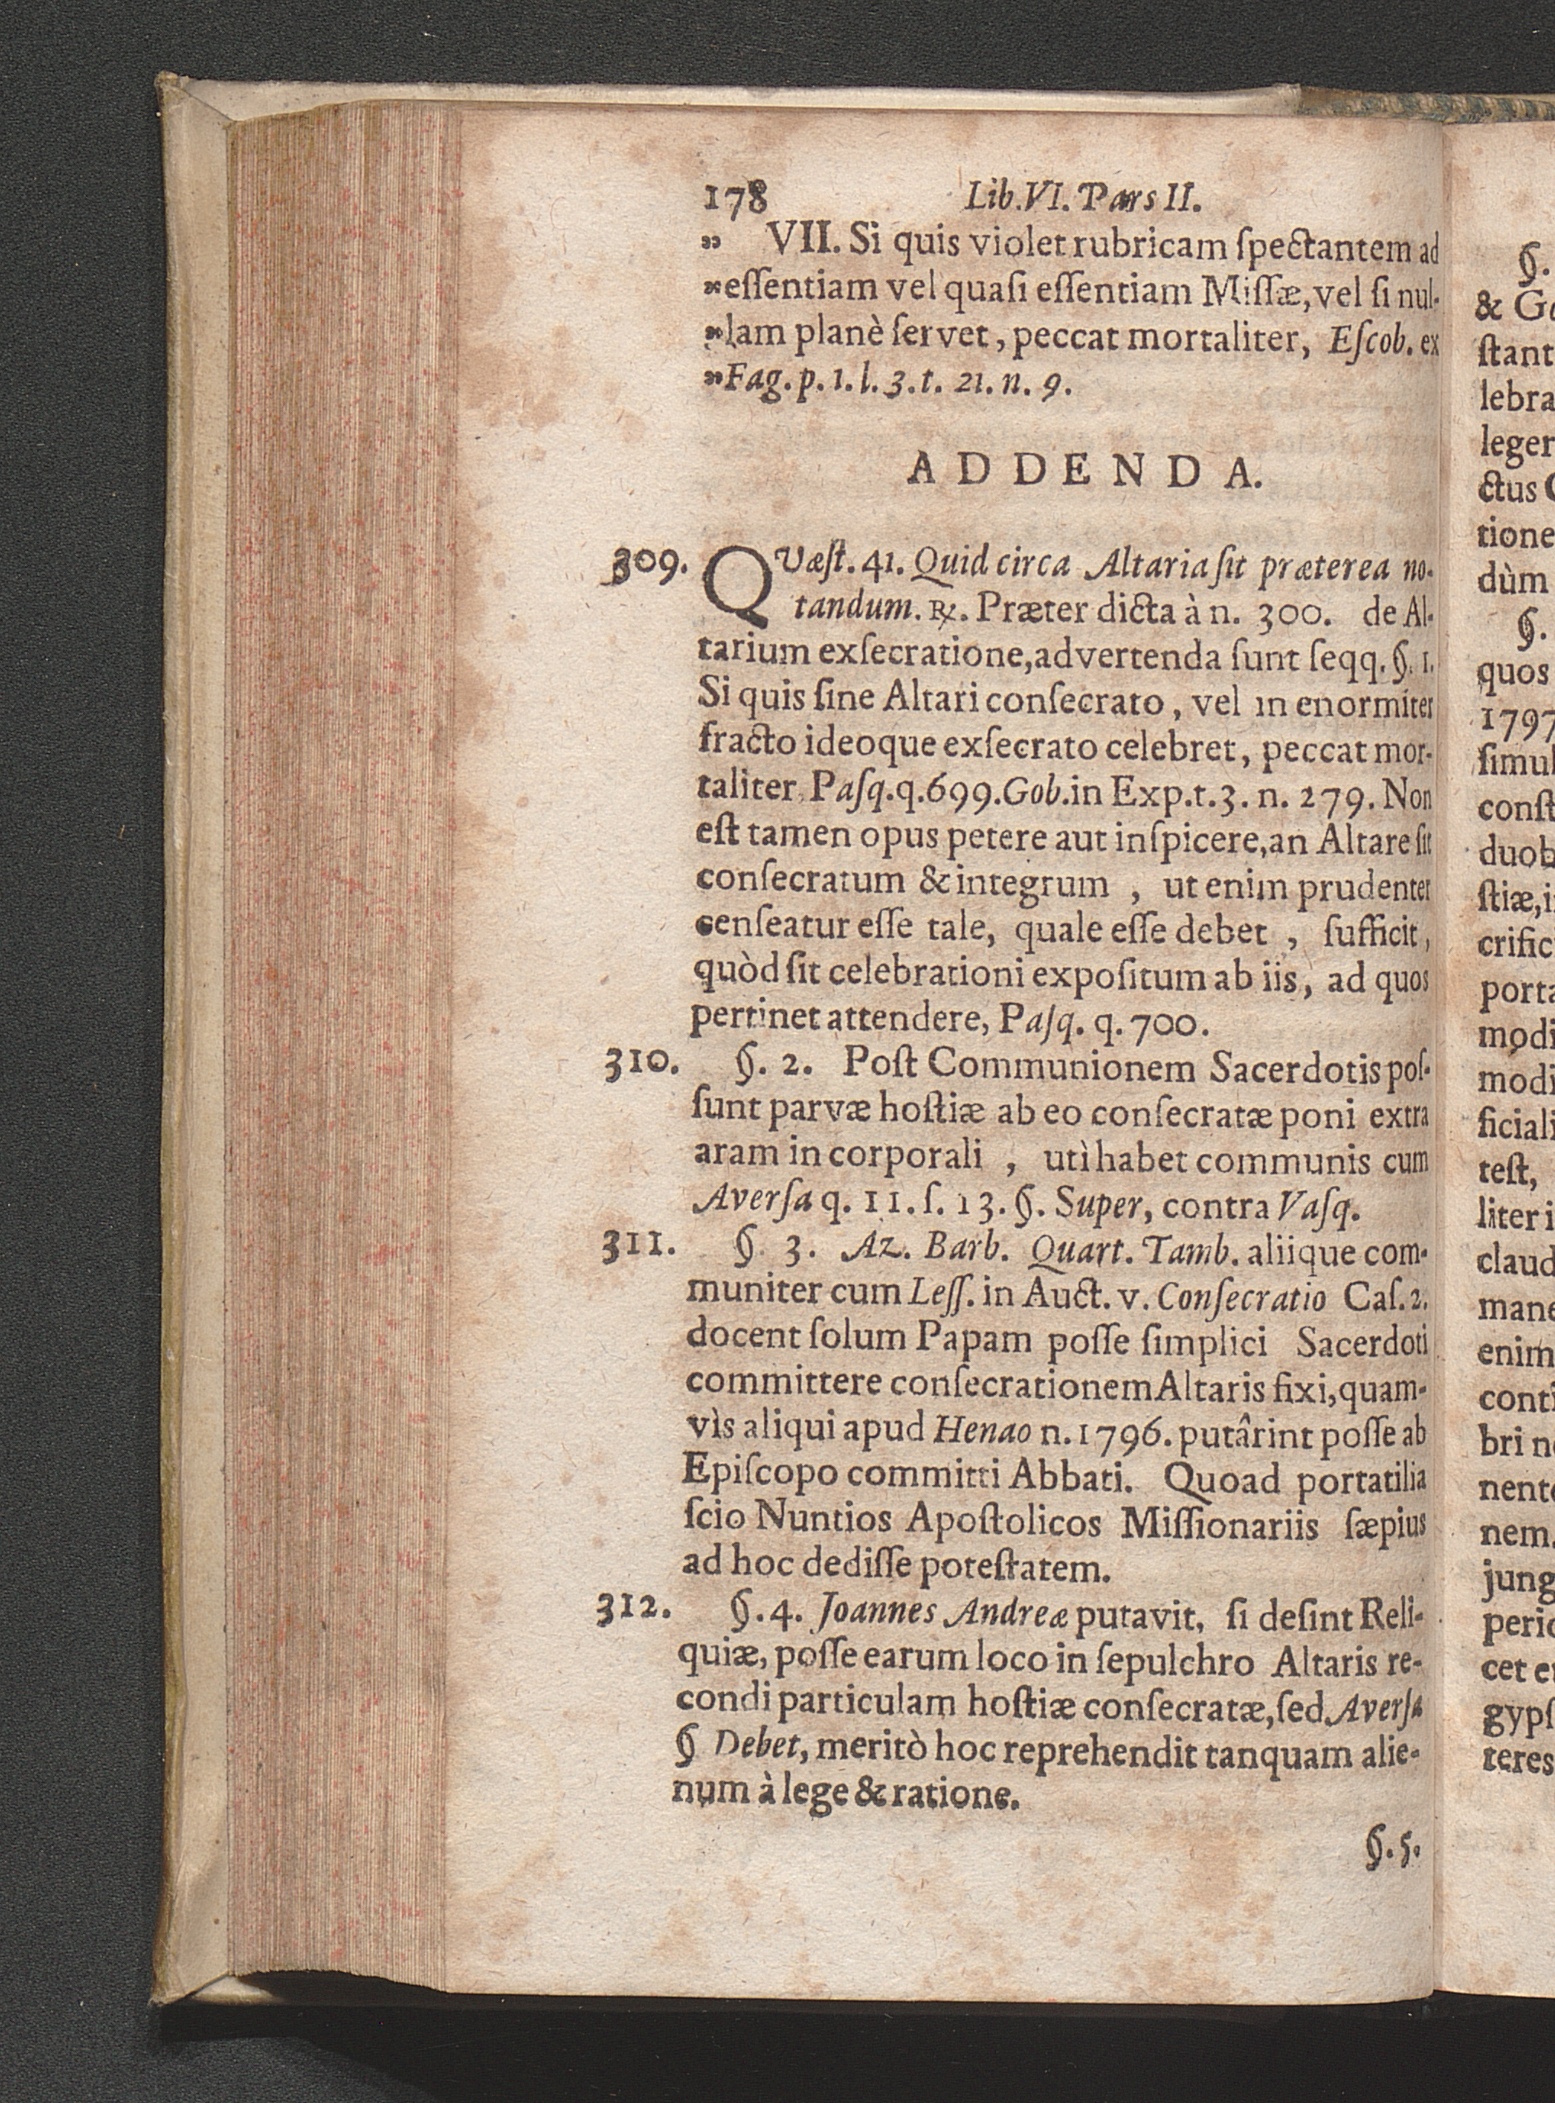 178 Lib.VI. Pars II.
„ VII. Si quis violet rubricam ſpectantem ad
„eſſentiam vel quaſi eſſentiam Miſſæ,vel ſi nul-
„lam planè ſervet, peccat mortaliter, Eſcob. ex
„Fag. p. 1. l. 3. t. 21. n. 9.
ADDENDA.
309. QVæſt. 41. Quid circa Altaria ſit præterea no-
tandum. ℞. Præter dicta à n. 300. de Al-
tarium exſecratione,advertenda ſunt ſeqq. §. 1.
Si quis ſine Altari conſecrato, vel in enormiter
fracto ideoque exſecrato celebret, peccat mor-
taliter, Paſq.q.699.Gob.in Exp.t.3. n. 279. Non
eſt tamen opus petere aut inſpicere,an Altare ſit
conſecratum & integrum , ut enim prudenter
cenſeatur eſſe tale, quale eſſe debet , ſufficit,
quòd ſit celebrationi expoſitum ab iis, ad quos
pertinet attendere, Paſq. q. 700.
310. §. 2. Poſt Communionem Sacerdotis poſ-
ſunt parvæ hoſtiæ ab eo conſecratæ poni extra
aram in corporali , utì habet communis cum
Averſa q. 11. ſ. 13. §. Super, contra Vaſq.
311. § 3. Az. Barb. Quart. Tamb. aliique com-
muniter cum Leſſ. in Auct. v. Conſecratio Caſ. 2.
docent ſolum Papam poſſe ſimplici Sacerdoti
committere conſecrationem Altaris fixi,quam-
vìs aliqui apud Henao n. 1796. putârint poſſe ab
Epiſcopo committi Abbati. Quoad portatilia
ſcio Nuntios Apoſtolicos Miſſionariis ſæpius
ad hoc dediſſe poteſtatem.
312. §. 4. Joannes Andreæ putavit, ſi deſint Reli-
quiæ, poſſe earum loco in ſepulchro Altaris re-
condi particulam hoſtiæ conſecratæ,ſed Averſa
§ Debet, meritò hoc reprehendit tanquam alie-
num à lege & ratione.
§. 5.
§.
&
ſtant
lebra
leger
ctus
tione
dùm
§.
quos
1797
ſimul
conſt
duob
ſtiæ,i
crific
porta
modi
modi
ficiali
teſt,
liter i
claud
mane
enim
conti
bri n
nent
nem.
jung
peric
cet e
gypſ
teres